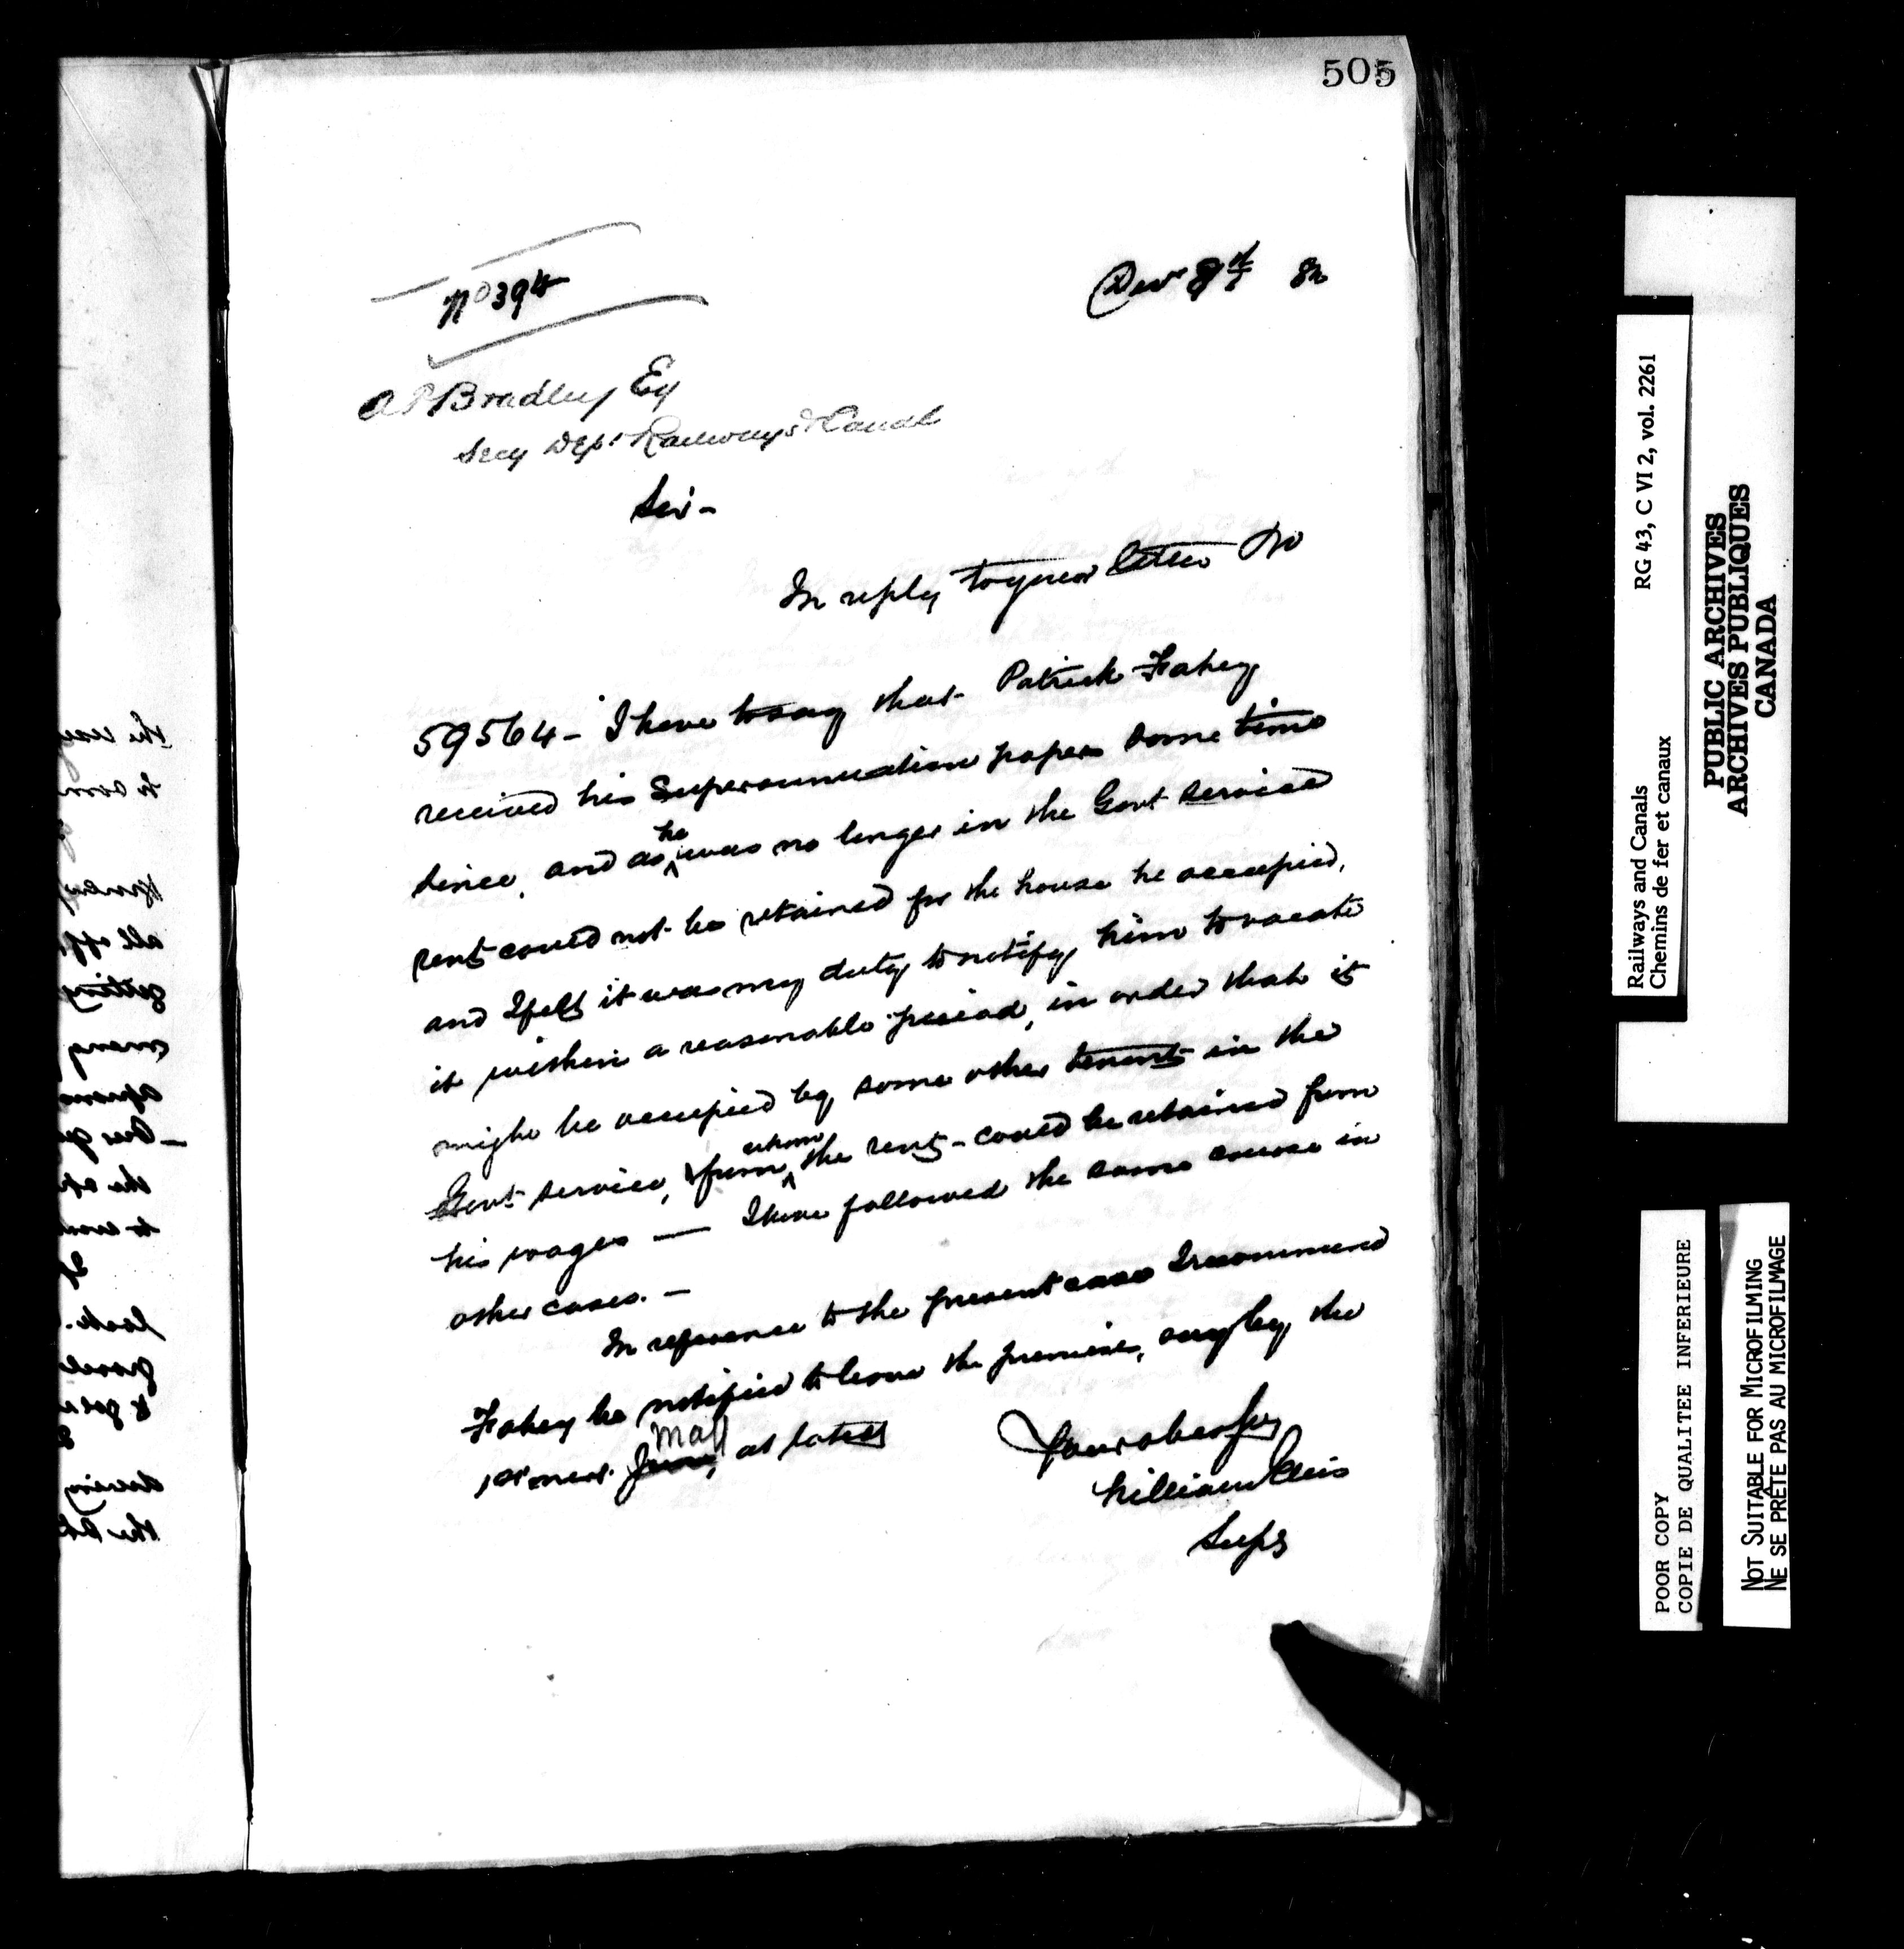 505
No 394
Decr 9th 82
A P Bradley Esq
Secy Dept Railways & Canals
Sir -
In reply to your letter No
59564 - I have to say that Patrick Fahey
received his Superannuation papers some time
since, and as he was no longer in the Govt service
rent could not be retained for the house he occupied,
and I felt it was my duty to notify him to vacate
it within a reasonable period, in order that it
might be occupied by some other tenant in the
Govt service, & from whom the rent - could be retained from
his wages — I have followed the same course in
other cases. -
In reference to the present case I recommend
Fahey be notified to leave the premises, say by the
1st next June, May at latest
Your obed Svt
William Ellis
Supt
Railways and Canals RG 43, C VI 2, vol. 2261
Chemins de fer et canaux
PUBLIC ARCHIVES
ARCHIVES PUBLIQUES
CANADA
POOR COPY
COPIE DE QUALITEE INFERIEURE
NOT SUITABLE FOR MICROFILMING
NE SE PRÊTE PAS AU MICROFILMAGE